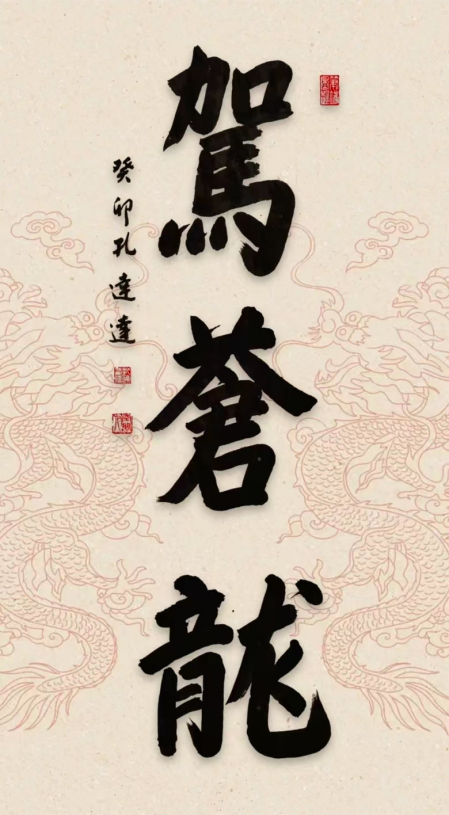 駕蒼龍
癸卯孔達達